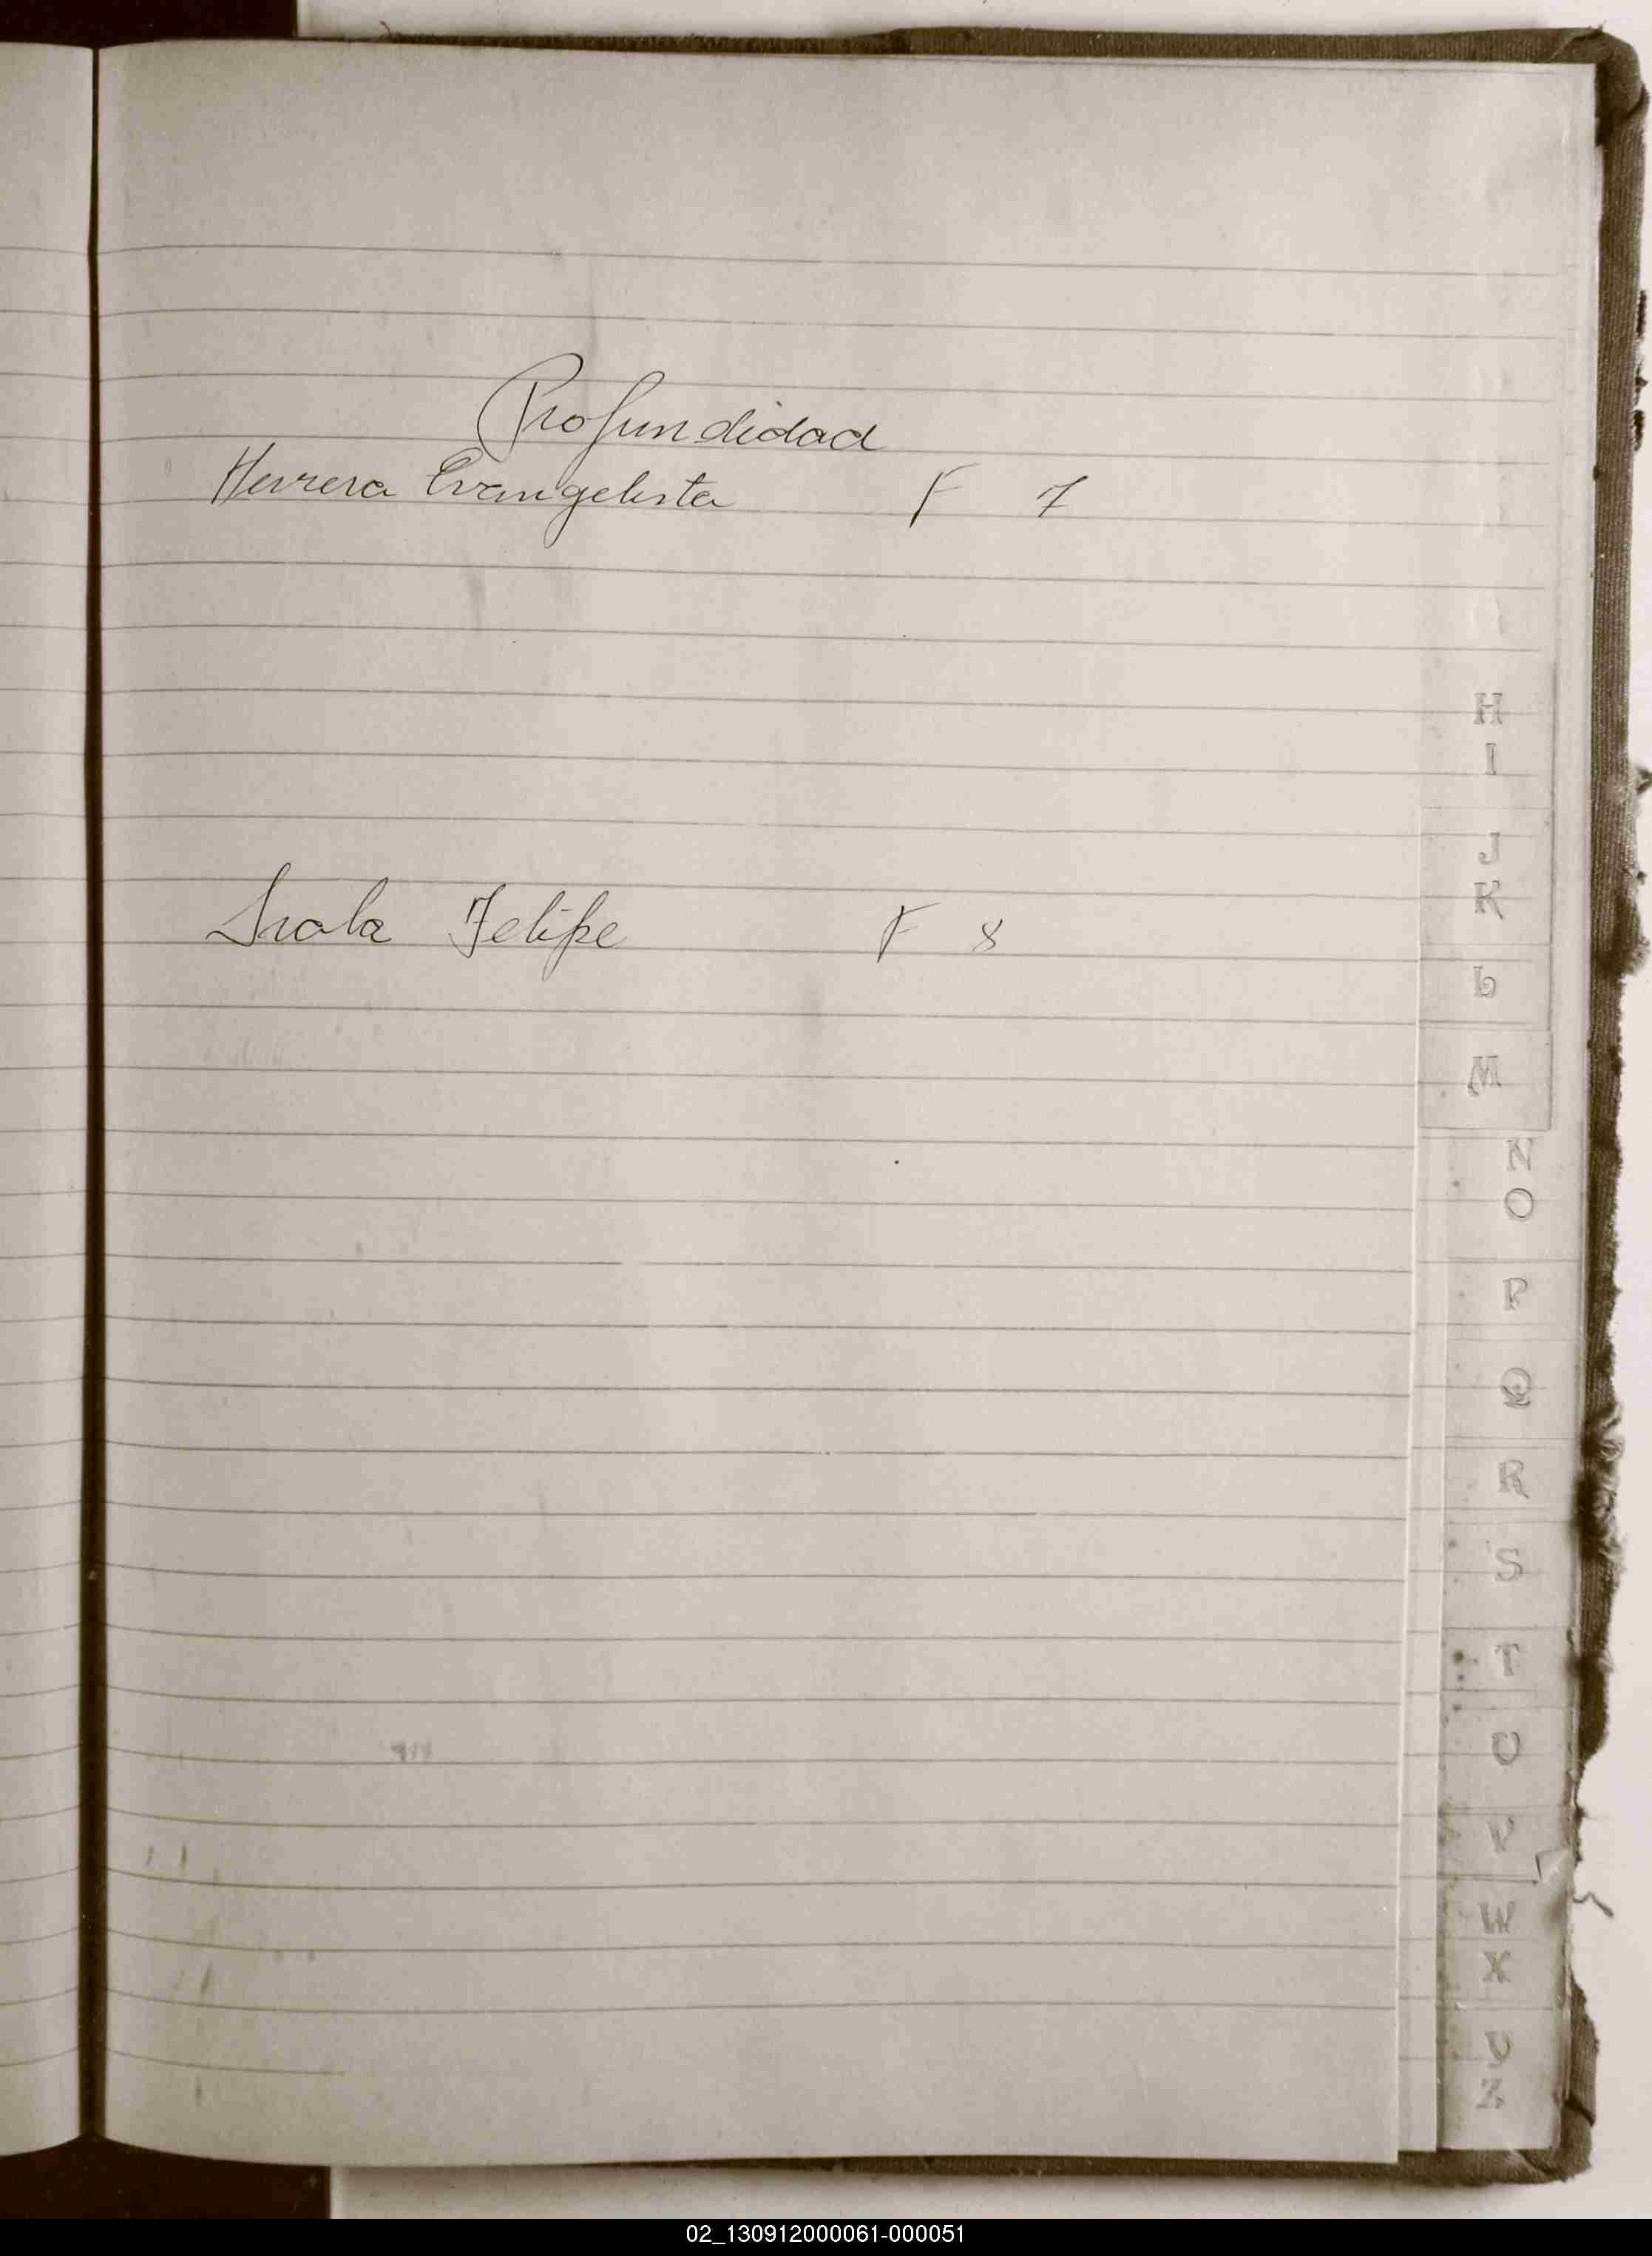 Profundidad
Herrera Evangelista F 7
Irala Felipe F 8
H
I
J
K
L
M
N
O
P
Q
R
S
T
U
V
W
X
Y
Z
02_130912000061-000051